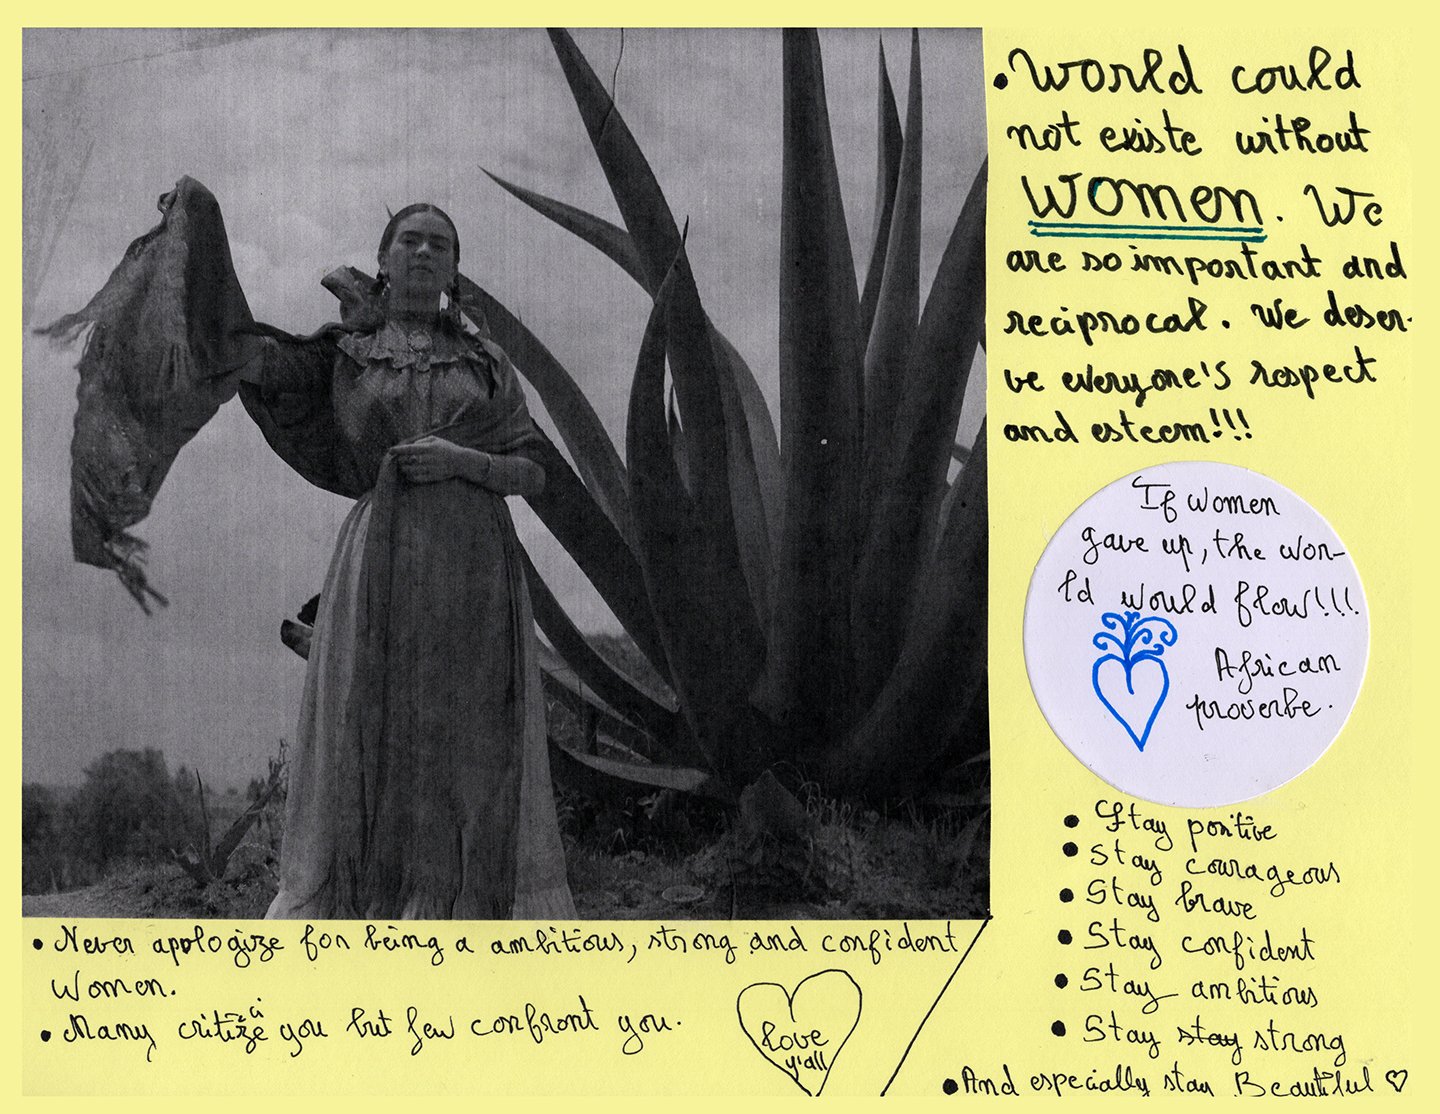 • World could
not existe without
Women. We
are so important and
reciprocal. We deser-
ve everyone's respect
and esteem!!!
If women
gave up, the wor-
ld would flow!!!
African
proverbe.
• Stay positive
• Stay courageous
• Stay brave
• Stay confident
• Stay ambitious
• Stay stay strong
• And especially stay Beautiful ♡
• Never apologize for being a ambitious, strong and confident
Women.
• Many critize you but few confront you.
love
y'all